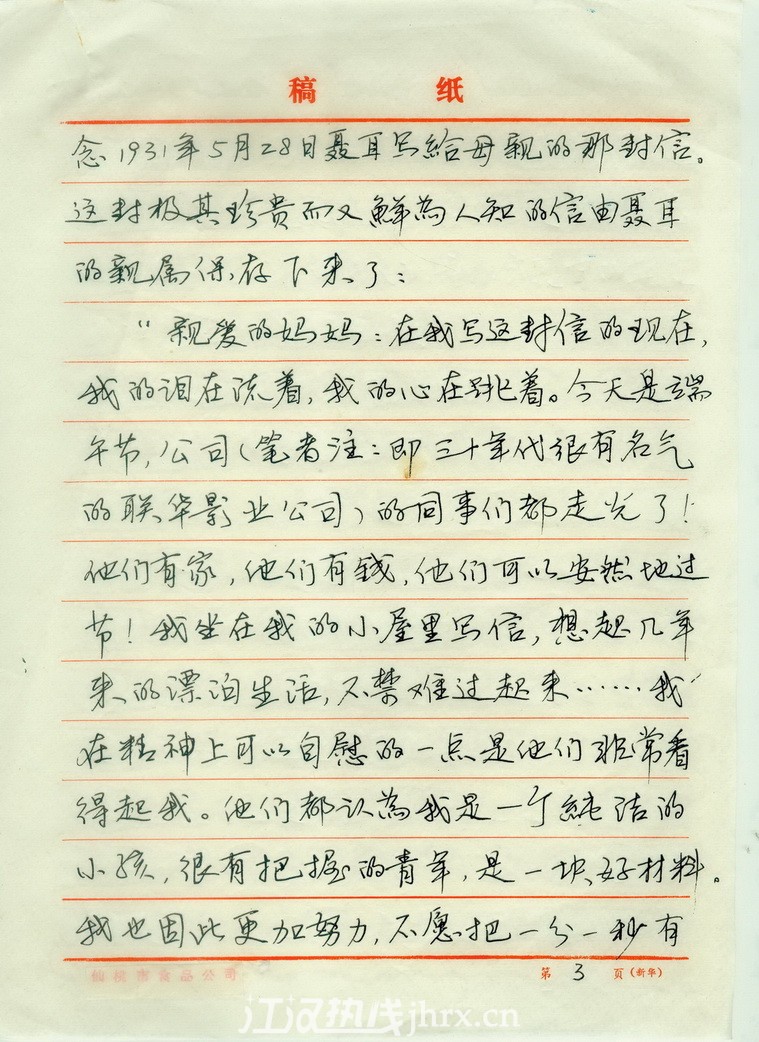 稿 纸
念1931年5月28日聂耳写給母親的那封信。
这封极其珍贵而又鮮為人知的信由聂耳
的親属保存下来了：
“親爱的妈妈：在我写这封信的现在，
我的泪在流着，我的心在跳着。今天是端
午节，公司（笔者注：即三十年代很有名气
的联华影业公司）的同事们都走光了！
他们有家，他们有钱，他们可以安然地过
节！我坐在我的小屋里写信，想起几年
来的漂泊生活，不禁难过起来……我
在精神上可以自慰的一点是他们非常看
得起我。他们都认為我是一个純洁的
小孩，很有把握的青年，是一块好材料。
我也因此更加努力，不愿把一分一秒有
仙桃市食品公司 第 3 页（新华）
江汉热线jhrx.cn